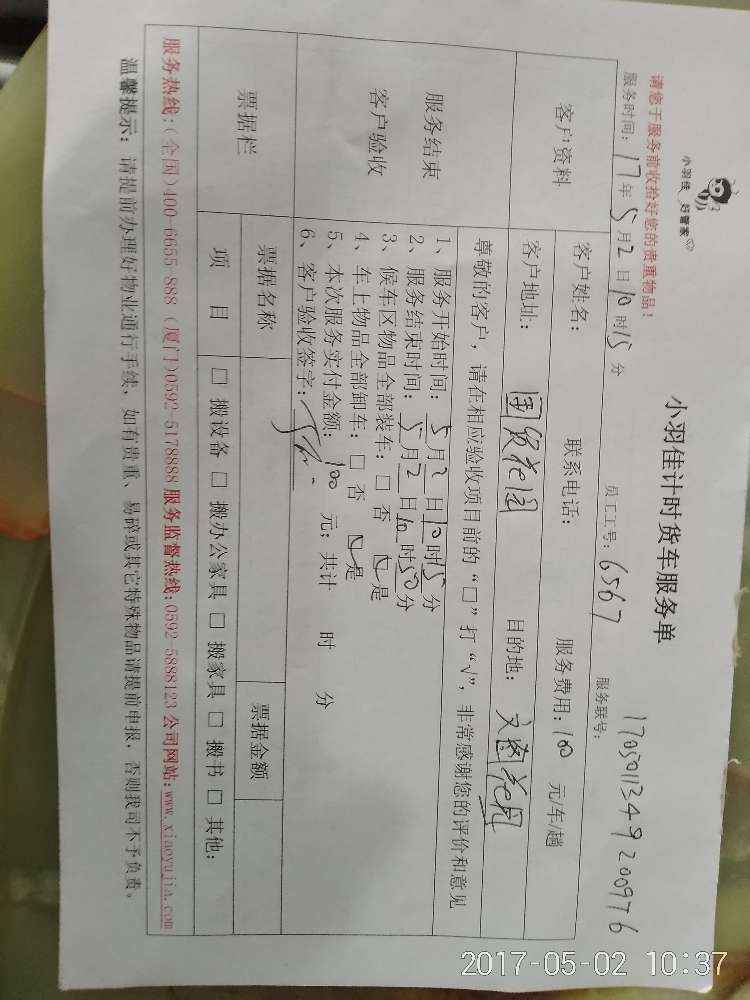 小羽佳 好管家
小羽佳计时货车服务单
请您于服务前收拾好您的贵重物品！
员工工号：6567
服务联号：
服务时间：17年5月2日10时15分
客户资料
客户姓名：
联系电话：
服务费用：100 元/车/趟
客户地址：国贸花园
目的地：文园花园
服务结束
客户验收
尊敬的客户，请在相应验收项目前的“□”打“√”，非常感谢您的评价和意见
1、服务开始时间：5月2日10时15分
2、服务结束时间：5月2日10时50分
3、候车区物品全部装车：□否 ☑是
4、车上物品全部卸车：□否 ☑是
5、本次服务实付金额：100 元；共计 时 分
6、客户验收签字：
票据栏
票据名称
票据金额
项 目
□ 搬设备 □ 搬办公家具 □ 搬家具 □ 搬书 □ 其他：
服务热线：(全国)400-6655-888 (厦门)0592-5178888 服务监督热线：0592-5888123 公司网站：www.xiaoyujia.com
温馨提示：请提前办理好物业通行手续，如有贵重、易碎或其它特殊物品请提前申报，否则我司不予负责。
2017-05-02 10:37